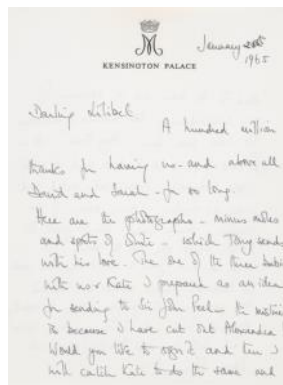 M
KENSINGTON PALACE
January
1965
Darling Lilibet
A hundred million
thanks for having us - and above all
David and Sarah - for so long.
Here are the photographs - minus
and spots of - which Tony sends
with his love. The one of the three
with us & Kate I propose as an idea
for sending to Sir John Peel - the
is because I have cut out Alexandra
Would you like to sign it and then I
will Kate to do the same and